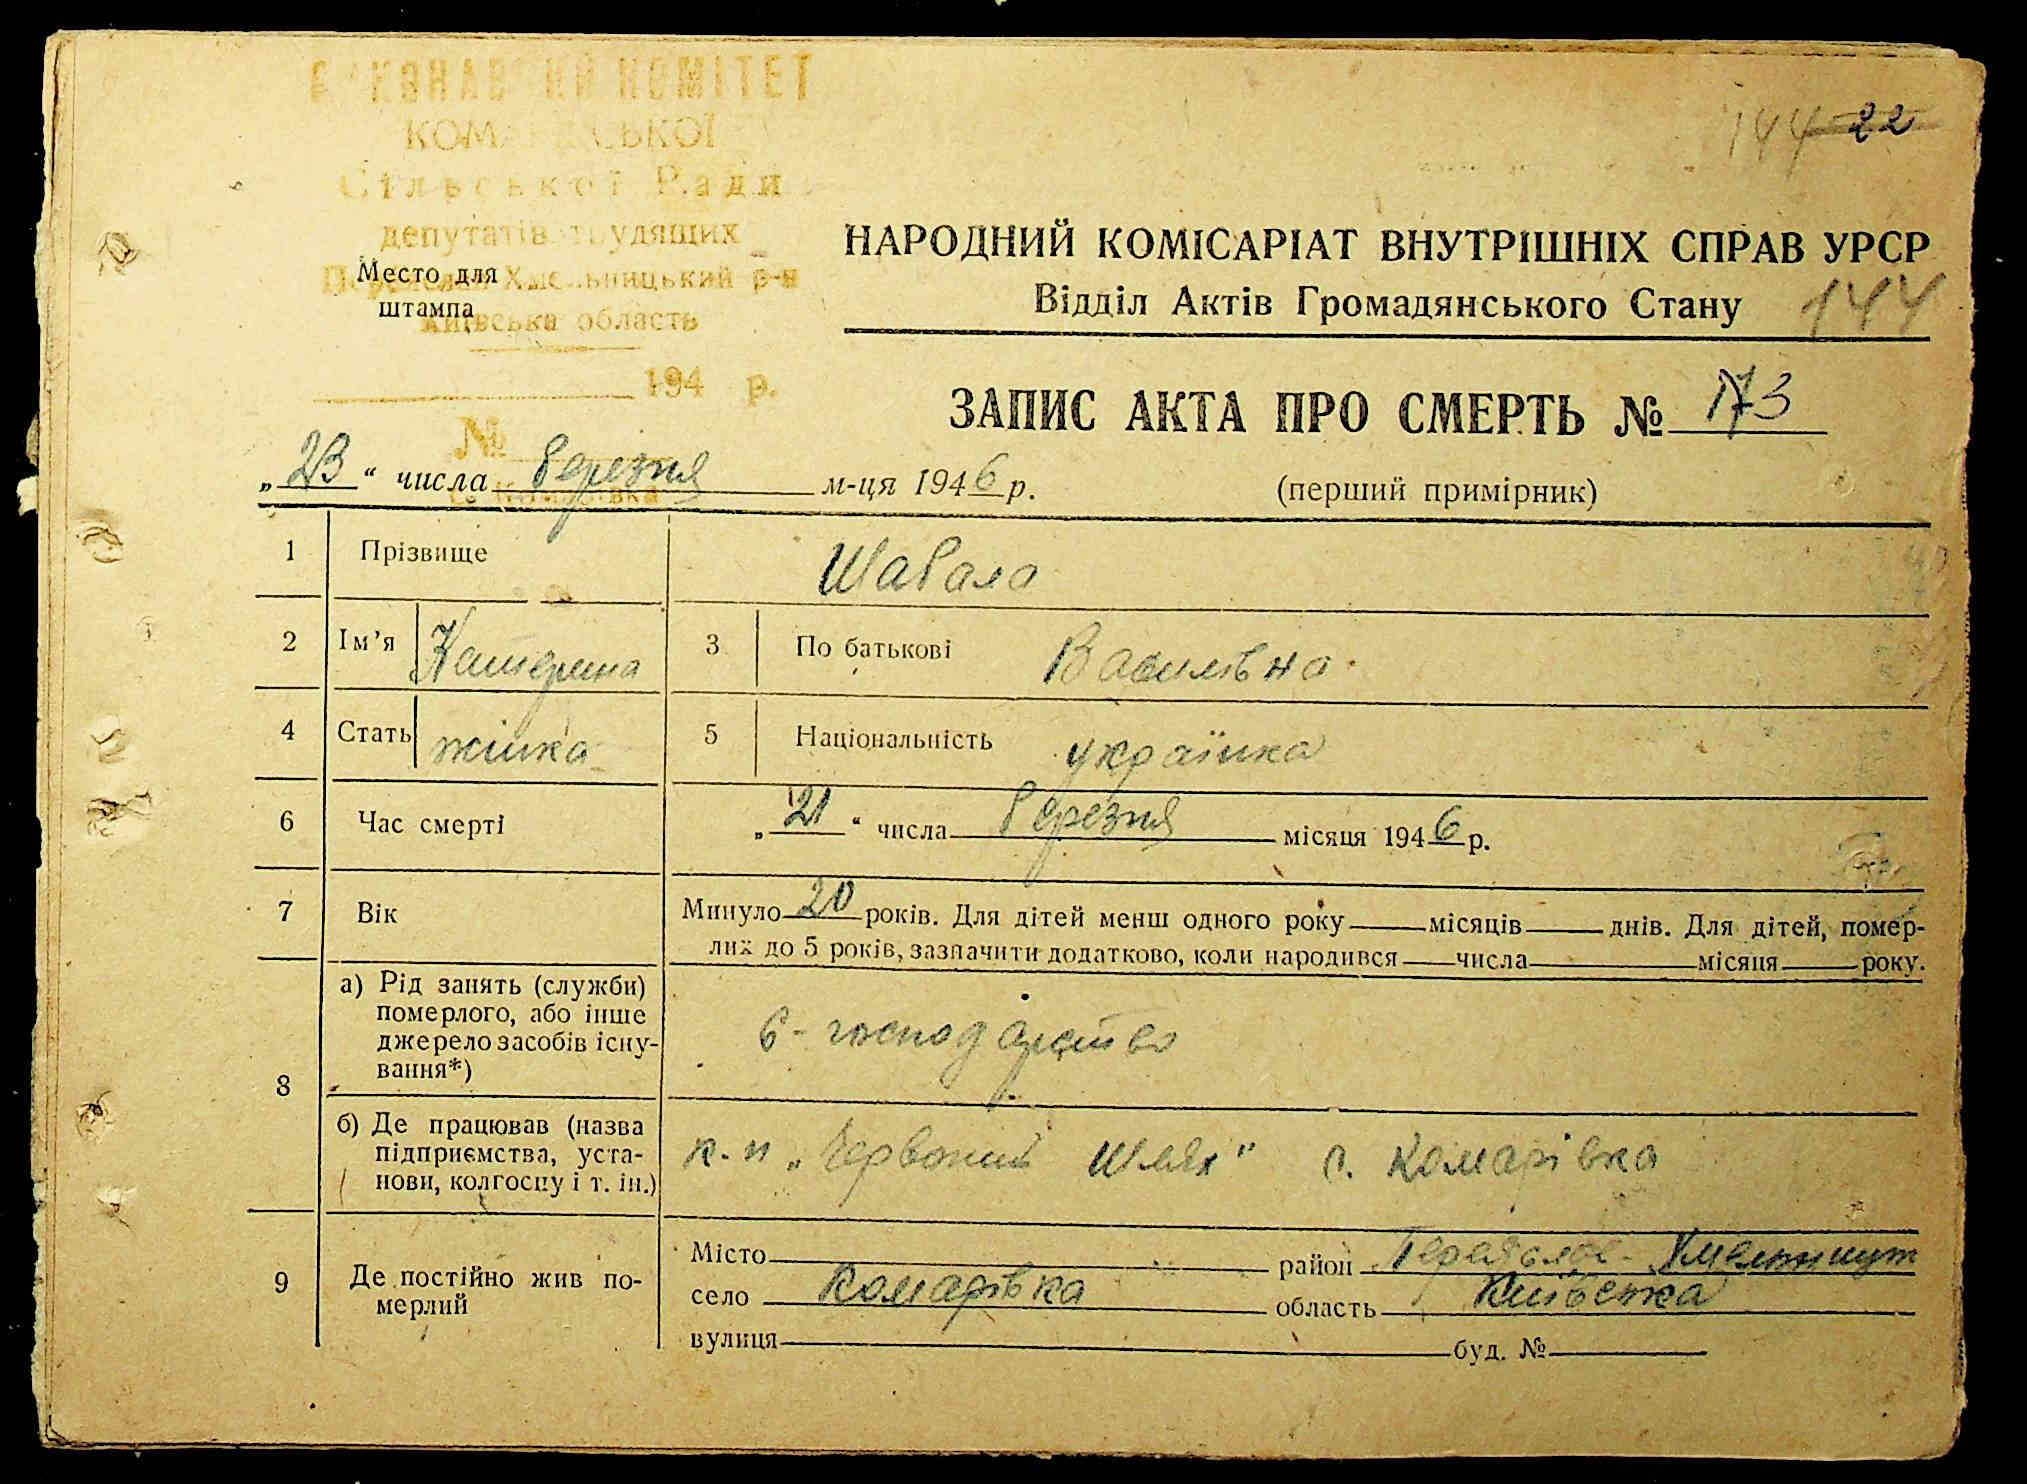 КОМІТЕТ
Сільської Ради
депутатів трудящих
Хмельницький р-н
Київська область
194 р.
№
Место для
штампа
144 22
НАРОДНИЙ КОМІСАРІАТ ВНУТРІШНІХ СПРАВ УРСР
Відділ Актів Громадянського Стану 144
ЗАПИС АКТА ПРО СМЕРТЬ № 173
„23“ числа березня м-ця 1946 р.
(перший примірник)
1 Прізвище Шабала
2 Ім’я Катерина 3 По батькові Василівна
4 Стать жінка 5 Національність українка
6 Час смерті „21“ числа березня місяця 1946 р.
7 Вік Минуло 20 років. Для дітей менш одного року місяців днів. Для дітей, помер-
лих до 5 років, зазначити додатково, коли народився числа місяця року.
8 а) Рід занять (служби)
померлого, або інше
джерело засобів існу-
вання*)
с-господарство
б) Де працював (назва
підприємства, уста-
нови, колгоспу і т. ін.)
„Червоний Шлях" с. Комарівка
9 Де постійно жив по-
мерлий
Місто район Хмельницьк
село Комарівка область Київська
вулиця буд. №